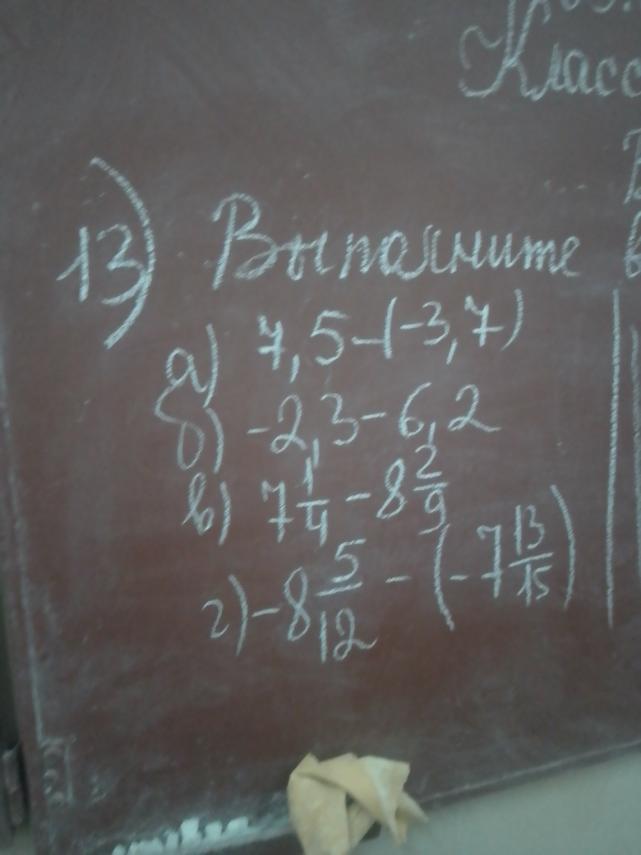 Класс
13) Выполните
а) 7,5-(-3,7)
б) -2,3-6,2
в) 7 1/4 - 8 2/9
г) -8 5/12 - (-7 13/15)